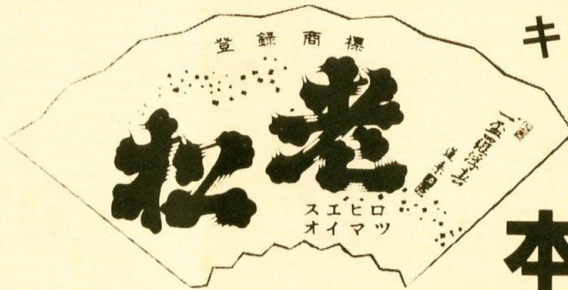 登録商標
老松
スエヒロ
オイマツ
キ
本